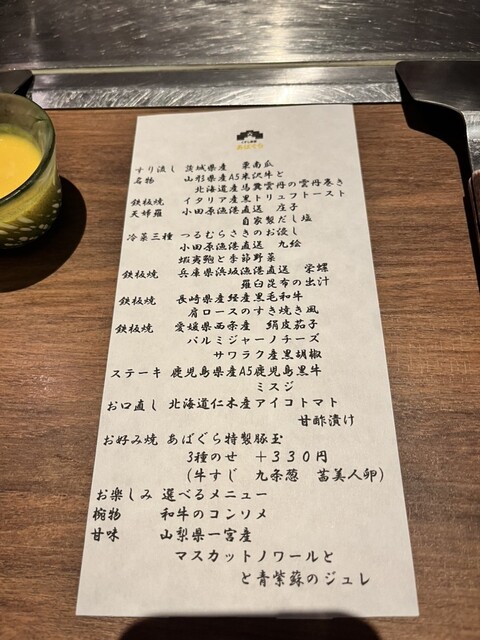 あばぐら
すり流し 茨城県産 栗南瓜
名物 山形県産A5米沢牛と
北海道産馬糞雲丹の雲丹巻き
鉄板焼 イタリア産黒トリュフトースト
天婦羅 小田原漁港直送 庄子
自家製だし塩
冷菜三種 つるむらさきのお浸し
小田原漁港直送 九絵
蝦夷鮑と季節野菜
鉄板焼 兵庫県浜坂漁港直送 栄螺
羅臼昆布の出汁
鉄板焼 長崎県産経産黒毛和牛
肩ロースのすき焼き風
鉄板焼 愛媛県西条産 絹皮茄子
パルミジャーノチーズ
サワラク産黒胡椒
ステーキ 鹿児島県産A5鹿児島黒牛
ミスジ
お口直し 北海道仁木産アイコトマト
甘酢漬け
お好み焼 あばぐら特製豚玉
3種のせ +330円
(牛すじ 九条葱 蕾美人卵)
お楽しみ 選べるメニュー
椀物 和牛のコンソメ
甘味 山梨県一宮産
マスカットノワールと
と青紫蘇のジュレ